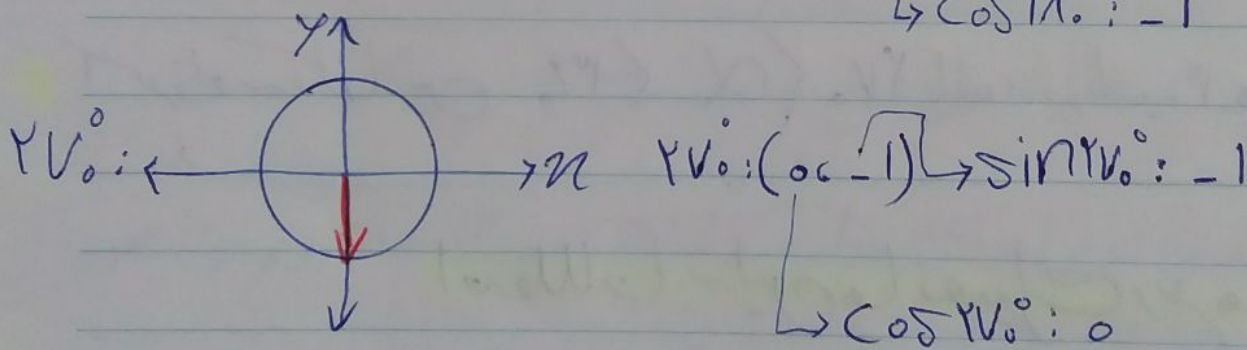 ↳ cos ۱۸۰ : -1
y
۲۷۰° : x ۲۷۰° : (0, -1) → sin ۲۷۰° : -1
↳ cos ۲۷۰° : 0